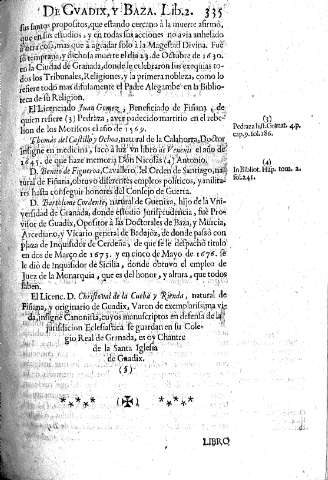 DE GVADIX, Y BAZA. Lib.2. 335
sus santos propositos, que estando cercano à la muerte afirmò,
que en sus estudios, y en todas sus acciones no avia anhelado
à otra cosa, mas que à agradar solo à la Magestad Divina. Fuè
su temprana, y dichosa muerte el dia 23. de Octubre de 1630.
en la Ciudad de Granada, donde le celebraron las exequias to-
dos los Tribunales, Religiones, y la primera nobleza, como lo
refiere todo mas dilatamente el Padre Alegambe en la Biblio-
teca de su Religion.
El Licenciado Juan Gomez, Beneficiado de Fiñana, de
quien refiere (3) Pedraza, aver padecido martirio en el rebe-
lion de los Moriscos el año de 1569.
(3)
Pedraza hist. Granat. 4.p.
cap.9. fol.186.
Thomàs del Castillo y Ochoa, natural de la Calahorra, Doctor
insigne en medicina, sacò à luz vn libro de Venenis el año de
1645. de que haze memoria Don Nicolàs (4) Antonio.
(4)
In Bibliot. Hisp. tom. 2.
fol.241.
D. Benito de Figueroa, Cavallero del Orden de Santiago, na-
tural de Fiñana, obtuvo diferentes empleos politicos, y milita-
res hasta conseguir honores del Consejo de Guerra.
D. Bartolomè Cordente, natural de Gueniso, hijo de la Vni-
versidad de Granada, donde estudiò Jurisprudencia, fuè Pro-
visor de Guadix, Opositor à las Doctorales de Baza, y Murcia,
Arcediano, y Vicario general de Badajòz, de donde passò con
plaza de Inquisidor de Cerdeña, de que se le despachò titulo
en dos de Março de 1673. y en cinco de Mayo de 1676. se
le diò de Inquisidor de Sicilia, donde obtuvo el empleo de
Juez de la Monarquia, que es del honor, y altura, que todos
saben.
El Licenc. D. Christoval de la Cueba y Rienda, natural de
Fiñana, y originario de Guadix, Varon de exemplarissima vi-
da, insigne Canonista, cuyos manuscriptos en defensa de la
jurisdicion Eclesiastica se guardan en su Cole-
gio Real de Granada, es oy Chantre
de la Santa Iglesia
de Guadix.
(§)
LIBRO